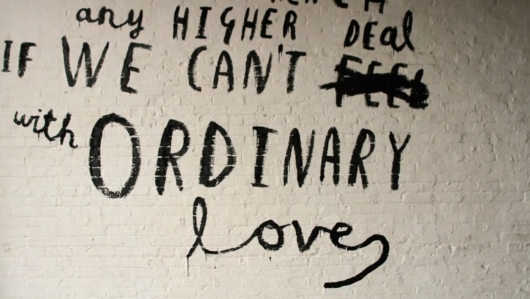 any HIGHER
IF WE CAN'T DEAL
with ORDINARY
love